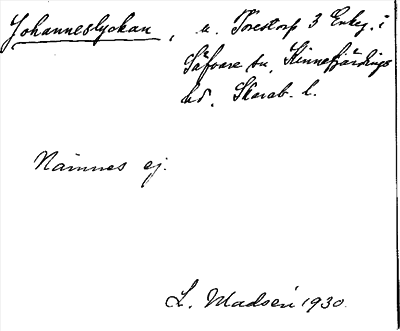 Johanneslyckan, u. Torestorp 3 Enkg. i
Säfvare sn, Kinnefjärdings
hd. Skarab. l.
Nämnes ej.
L. Madsen 1930.